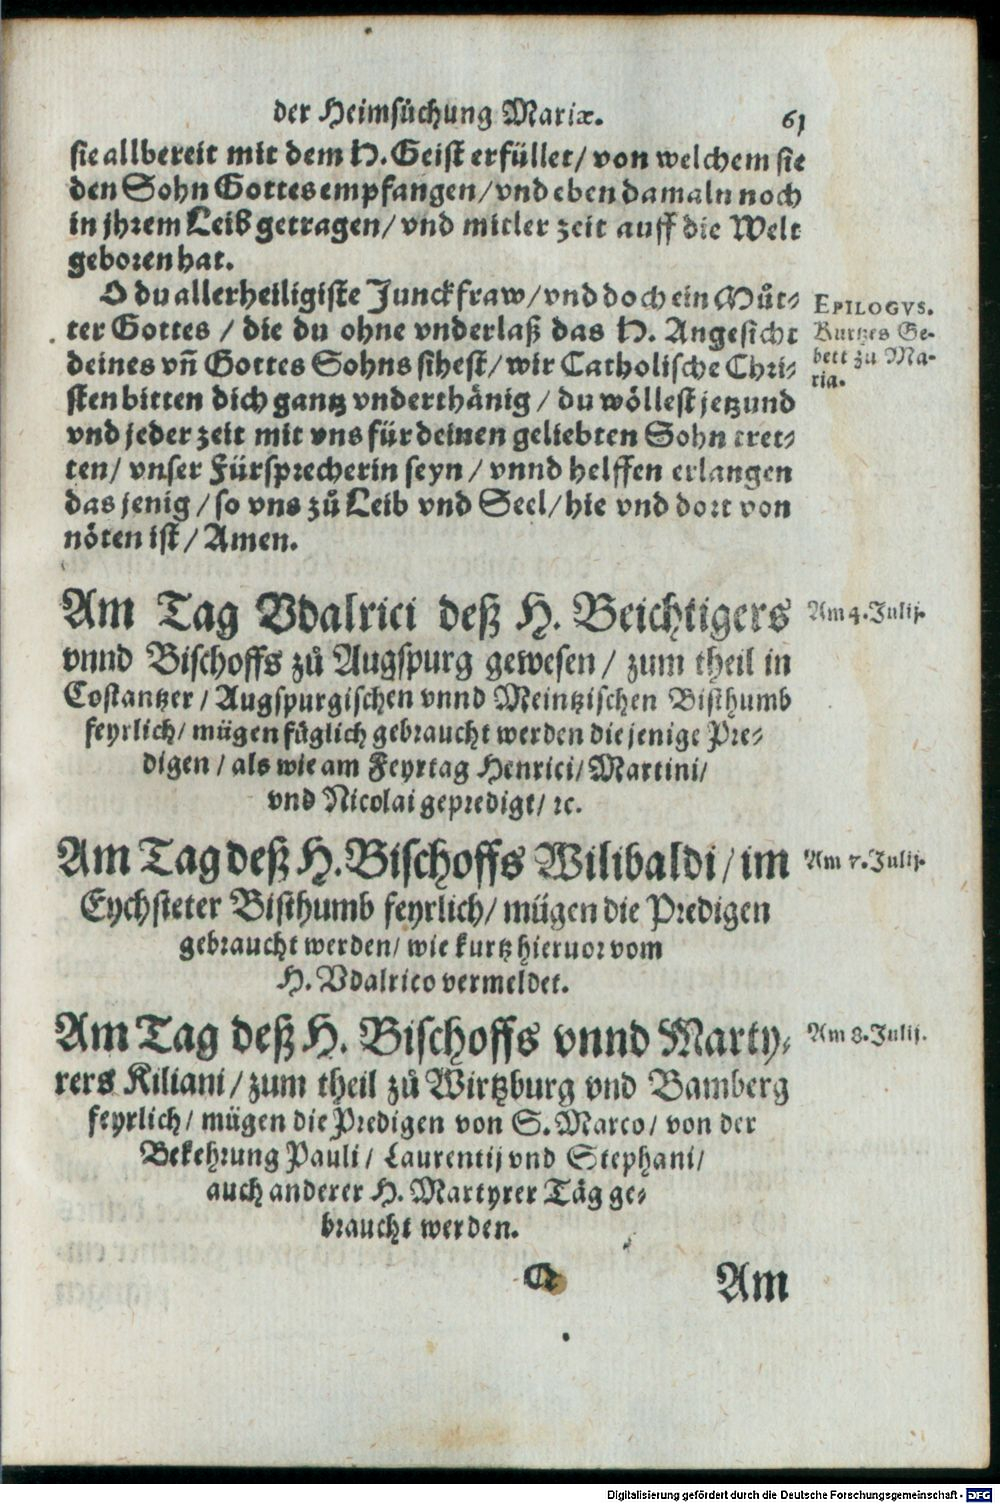 der Heimsůchung Mariæ. 61
sie allbereit mit dem H. Geist erfüllet / von welchem sie
den Sohn Gottes empfangen / vnd eben damaln noch
in jhrem Leib getragen / vnd mitler zeit auff die Welt
geboren hat.
O du allerheiligiste Junckfraw / vnd doch ein Můt⸗
ter Gottes / die du ohne vnderlaß das H. Angesicht
deines vñ Gottes Sohns sihest / wir Catholische Chri⸗
sten bitten dich gantz vnderthänig / du wöllest jetzund
vnd jeder zeit mit vns für deinen geliebten Sohn tret⸗
ten / vnser Fürsprecherin seyn / vnnd helffen erlangen
das jenig / so vns zů Leib vnd Seel / hie vnd dort von
nöten ist / Amen.
EPILOGVS.
Kurtzes Ge⸗
bett zu Ma⸗
ria.
Am Tag Vdalrici deß H. Beichtigers
vnnd Bischoffs zů Augspurg gewesen / zum theil in
Costantzer / Augspurgischen vnnd Meintzischen Bisthumb
feyrlich / mügen füglich gebraucht werden die jenige Pre⸗
digen / als wie am Feyrtag Henrici / Martini /
vnd Nicolai gepredigt / ꝛc.
Am 4. Julij.
Am Tag deß H. Bischoffs Wilibaldi / im
Eychsteter Bisthumb feyrlich / mügen die Predigen
gebraucht werden / wie kurtz hieruor vom
H. Vdalrico vermeldet.
Am 7. Julij.
Am Tag deß H. Bischoffs vnnd Marty⸗
rers Kiliani / zum theil zů Wirtzburg vnd Bamberg
feyrlich / mügen die Predigen von S. Marco / von der
Bekehrung Pauli / Laurentij vnd Stephani /
auch anderer H. Martyrer Täg ge⸗
braucht werden.
Am 8. Julij.
Q Am
Digitalisierung gefördert durch die Deutsche Forschungsgemeinschaft - DFG